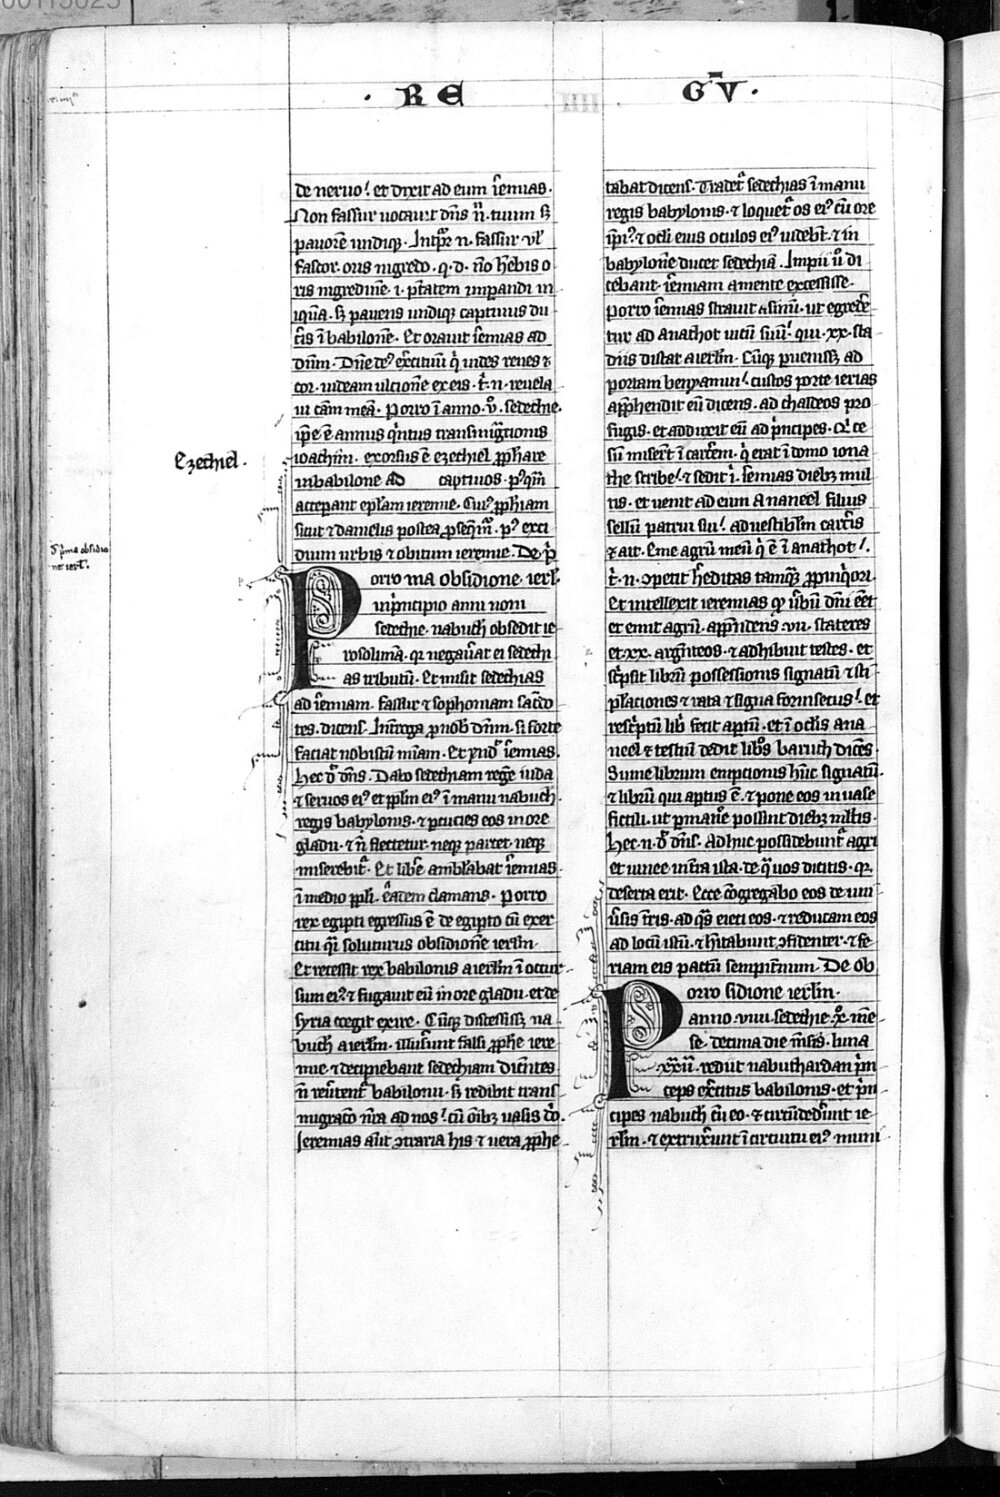 00115025
· R E G V̄ ·
de neruo. et dixit ad eum ieremias.
Non fassur uocauit dn̄s n̄. tuum s̄
pauorē undiqꝫ. Intp̄r n. fassur ul̄
fascor. oris nigredo. q. d. nō hēbis o
ris nigredinē. i. p̄tatem imperandi in
iqua. s̄ pauens undiqꝫ captiuus du
c̄is ī babilonē. Et orauit iēmias ad
dnm̄. Dn̄e deꝰ exc̄ituū q̇ uides renes ⁊
cor. uideam ulcionē ex eis. t̄. n. reuela
ui cām meā. Porro ī anno .v̊. sedechie.
ip̄e ē annus q̇ntus transmig̃tionis
ioachim. exorsus ē ezechiel ꝓph̄are
in babilone ad captiuos. pꝰq̄m
acceperant ep̄lam ieremie. Cuiꝰ ꝓph̄iam
sicut ⁊ danielis postea ꝓseq̄mr̄. pꝰ exci
dium urbis ⁊ obitum ieremie. De p̄
Ezechiel.
Porro ma obsidione ierl̄.
in p̄ncipio anni noni
sedechie. nabuch̄ obsedit ie
rosolimā. qꝛ negauat ei sedechi
as tributū. Et misit sedechias
ad iēmiam. fassur ⁊ sophoniam sac̄do
tes. dicens. Int̄roga ꝓ nob̄ dnm̄. si forte
faciat nobiscū m̄iam. Et r̄nd̄ iēmias.
Hec d̄ dn̄s. Dabo sedechiam regē iuda
⁊ seruos eiꝰ et pp̄lm eiꝰ ī manu nabuch̄.
regis babylonis. ⁊ ꝑcuciet eos in ore
gladii. ⁊ n̄ flectetur. neqꝫ parcet. neqꝫ
miserebit̄. Et lib̄e ambl̄abat iēmias.
ī medio ppl̄i. clamans. Porro
rex egipti egressus ē de egipto cū exer
citu q̇ soluturus obsidionē ierl̄m.
Et recessit rex babilonis a ierl̄m ī occur
sum eiꝰ. ⁊ fugauit eū in ore gladii. et de
syria coegit exire. Cūqꝫ discessissꝫ na
buch̄ a ierl̄m. illus̄unt falsi ꝓph̄e iere
mie. ⁊ decipiebant sedechiam dicētes
n̄ reūtent̄ babilonii. s̄ redibit trans
migrac̄o nr̄a ad nos. cū ōibꝫ uasis d̄o.
Jeremias aūt ꝯtraria his ⁊ uera ꝓph̄e
tabat dicens. Tradet̄ sedechias ī manu
regis babylonis. ⁊ loquet̄ os eiꝰ cū ore
ip̄iꝰ. ⁊ oc̄li eius oculos eiꝰ uidebt̄. ⁊ in
babylonē ducet sedechiā. Impii ū di
cebant. iēmiam a mente excessisse.
Porro iēmias strauit asinū. ut egrede
tur ad anathot uicū suū. qui .xx. sta
diis distat a ierl̄m. Cūqꝫ ꝑuenissꝫ ad
portam beniamin. custos porte ierias
app̄hendit eū dicens. ad chaldeos pro
fugis. et adduxit eū ad p̄ncipes. Qi ce
sū miser̄t ī carc̄em. q̇ erat ī domo iona
the scribe. ⁊ sedit i. iēmias diebꝫ mul
tis. et uenit ad eum Ananeel filius
sellū patrui sui. ad uestibl̄m carc̄is
⁊ ait. Eme agrū meū q̇ ē ī anathot.
t̄. n. ꝯpetit h̄editas tamqꝫ ꝓpinq̇ori.
Et intellexit ieremias qꝫ ūbū dn̄i eēt
et emit agrū. app̄endens .vii. stateres
et .xx. argn̄teos. ⁊ adhibuit testes. et
sc̄psit librū possessionis signatū ⁊ sti
pl̄aciones ⁊ rata ⁊ signa forinsecus. et
resc̄ptū lib̄ fecit aꝑtū. et ī oc̄lis ana
neel ⁊ testiū dedit lib̄os baruch dicēs.
Sume librum emptionis hūc signatū.
⁊ librū qui aptus ē. ⁊ pone eos in uase
fictili. ut ꝑmanē possint diebꝫ ml̄tis.
Hec .n. d̄ dn̄s. Adhuc possidebunt̄ agri
et uinee in tr̄a ista. de q̄ uos dicitis. qꝫ
deserta erit. Ecce cōgregabo eos de uni
ūsis tr̄is. ad q̄s eieci eos. ⁊ reducam eos
ad locū istū. ⁊ hītabunt ꝯfidenter. ⁊ fe
riam eis pactū sempit̄num. De ob
Porro sidione ierl̄m.
anno .viiii. sedechie. x̊. me
se. decima die m̄sis. luna
rediit nabuchardan p̄n
ceps exc̄itus babilonis. et p̄n
cipes nabuch̄ cū eo. ⁊ circūded̄unt ie
rl̄m. ⁊ extrux̄unt ī circuitu eiꝰ muni